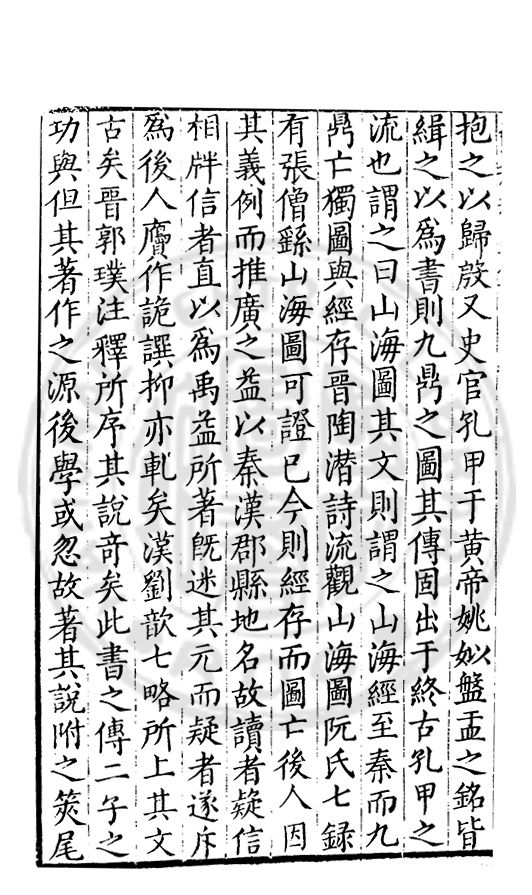 抱之以歸殷又史官孔甲于黄帝姚姒盤盂之銘皆
緝之以爲書則九鼎之圖其傳固出于終古孔甲之
流也謂之曰山海圖其文則謂之山海經至秦而九
鼎亡獨圖與經存晉陶潛詩流觀山海圖阮氏七録
有張僧繇山海圖可證已今則經存而圖亡後人因
其義例而推廣之益以秦漢郡縣地名故讀者疑信
相牂信者直以爲禹益所著旣迷其元而疑者遂斥
爲後人贗作詭譔抑亦軋矣漢劉歆七略所上其文
古矣晉郭璞注釋所序其說奇矣此書之傳二子之
功與但其著作之源後學或忽故著其說附之筴尾